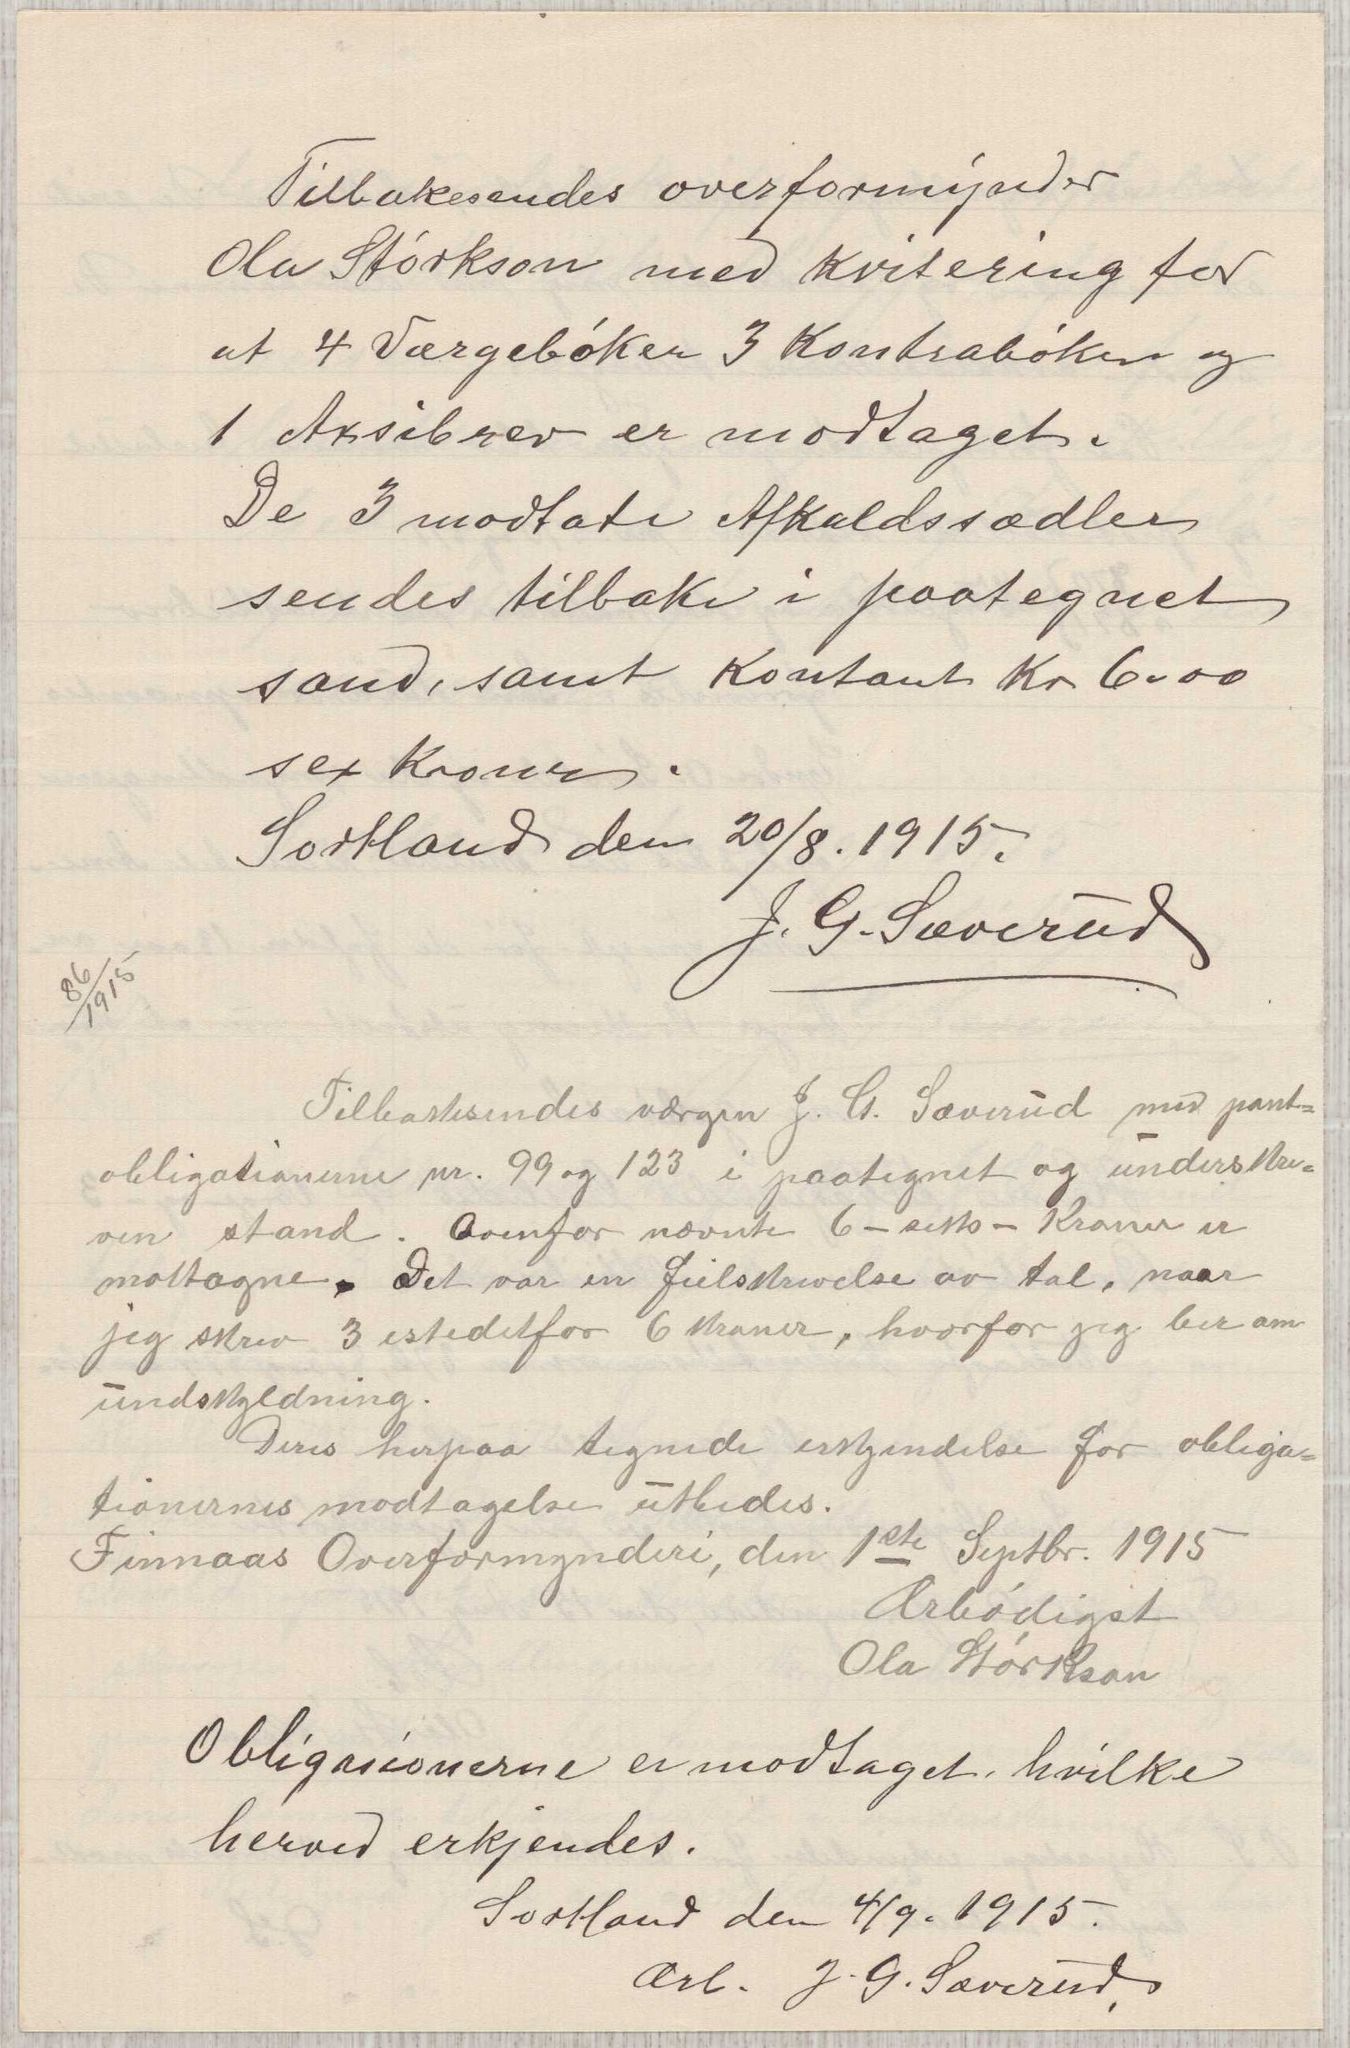 Tilbakesendes overformynder
Ola Störkson med kvitering for
at 4 Værgebóker 3 Kontrabóker og
1 Aksibrev er modtaget.
De 3 modtate Afkaldssædler
sendes tilbake i paategnet
sand, samt kontant Kr 6.00
sex Kroner.
Sortland den 20/8. 1915.
J. G. Sæverud
86/1915
Tilbakesendes værgen J. G. Sæverud med pant=
obligationerne nr. 99 og 123 i paategnet og underskre=
ven stand. Ovenfor nævnte 6 - seks - Kroner er
mottagne. Det var en feilskrivelse av tal, naar
jeg skrev 3 istedetfor 6 kroner, hvorfor jeg ber om
undskyldning.
Deres herpaa tegnede erkjendelse for obliga=
tionernes modtagelse utbedes.
Finnaas Overformynderi, den 1ste Septbr. 1915
Ærbódigst
Ola Störkson
Obligasionerne er modtaget. hvilke
herved erkjendes.
Sortland den 4/9. 1915.
Ærb. J. G. Sæverud.